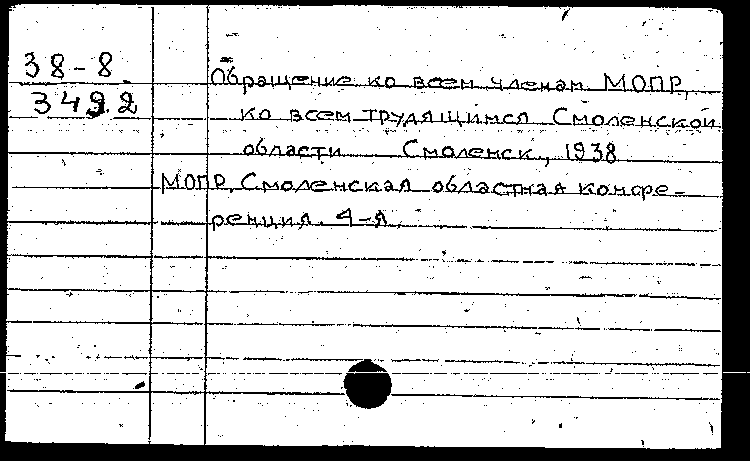 38-8
3492
Обращение ко всем членам МОПР,
ко всем трудящимся Смоленской
области Смоленск, 1938
МОПР, Смоленская областная конфе-
ренция. 4-я.